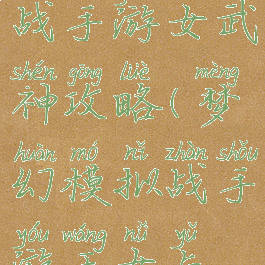 战手游女武
shén gōng lüè mèng
神攻略(梦
huàn mó nǐ zhàn shǒu
幻模拟战手
yóu wáng nǚ yǔ